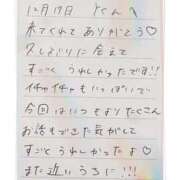 12月17日 Yくんへ
来てくれて ありがとう♡
久しぶりに 会えて
すごく うれしかったです!!
イチャイチャも いっぱいで
今回はいつもより たくさん
お話もできた気がして
すごく うれしかったす♡
また近いうちに!!!